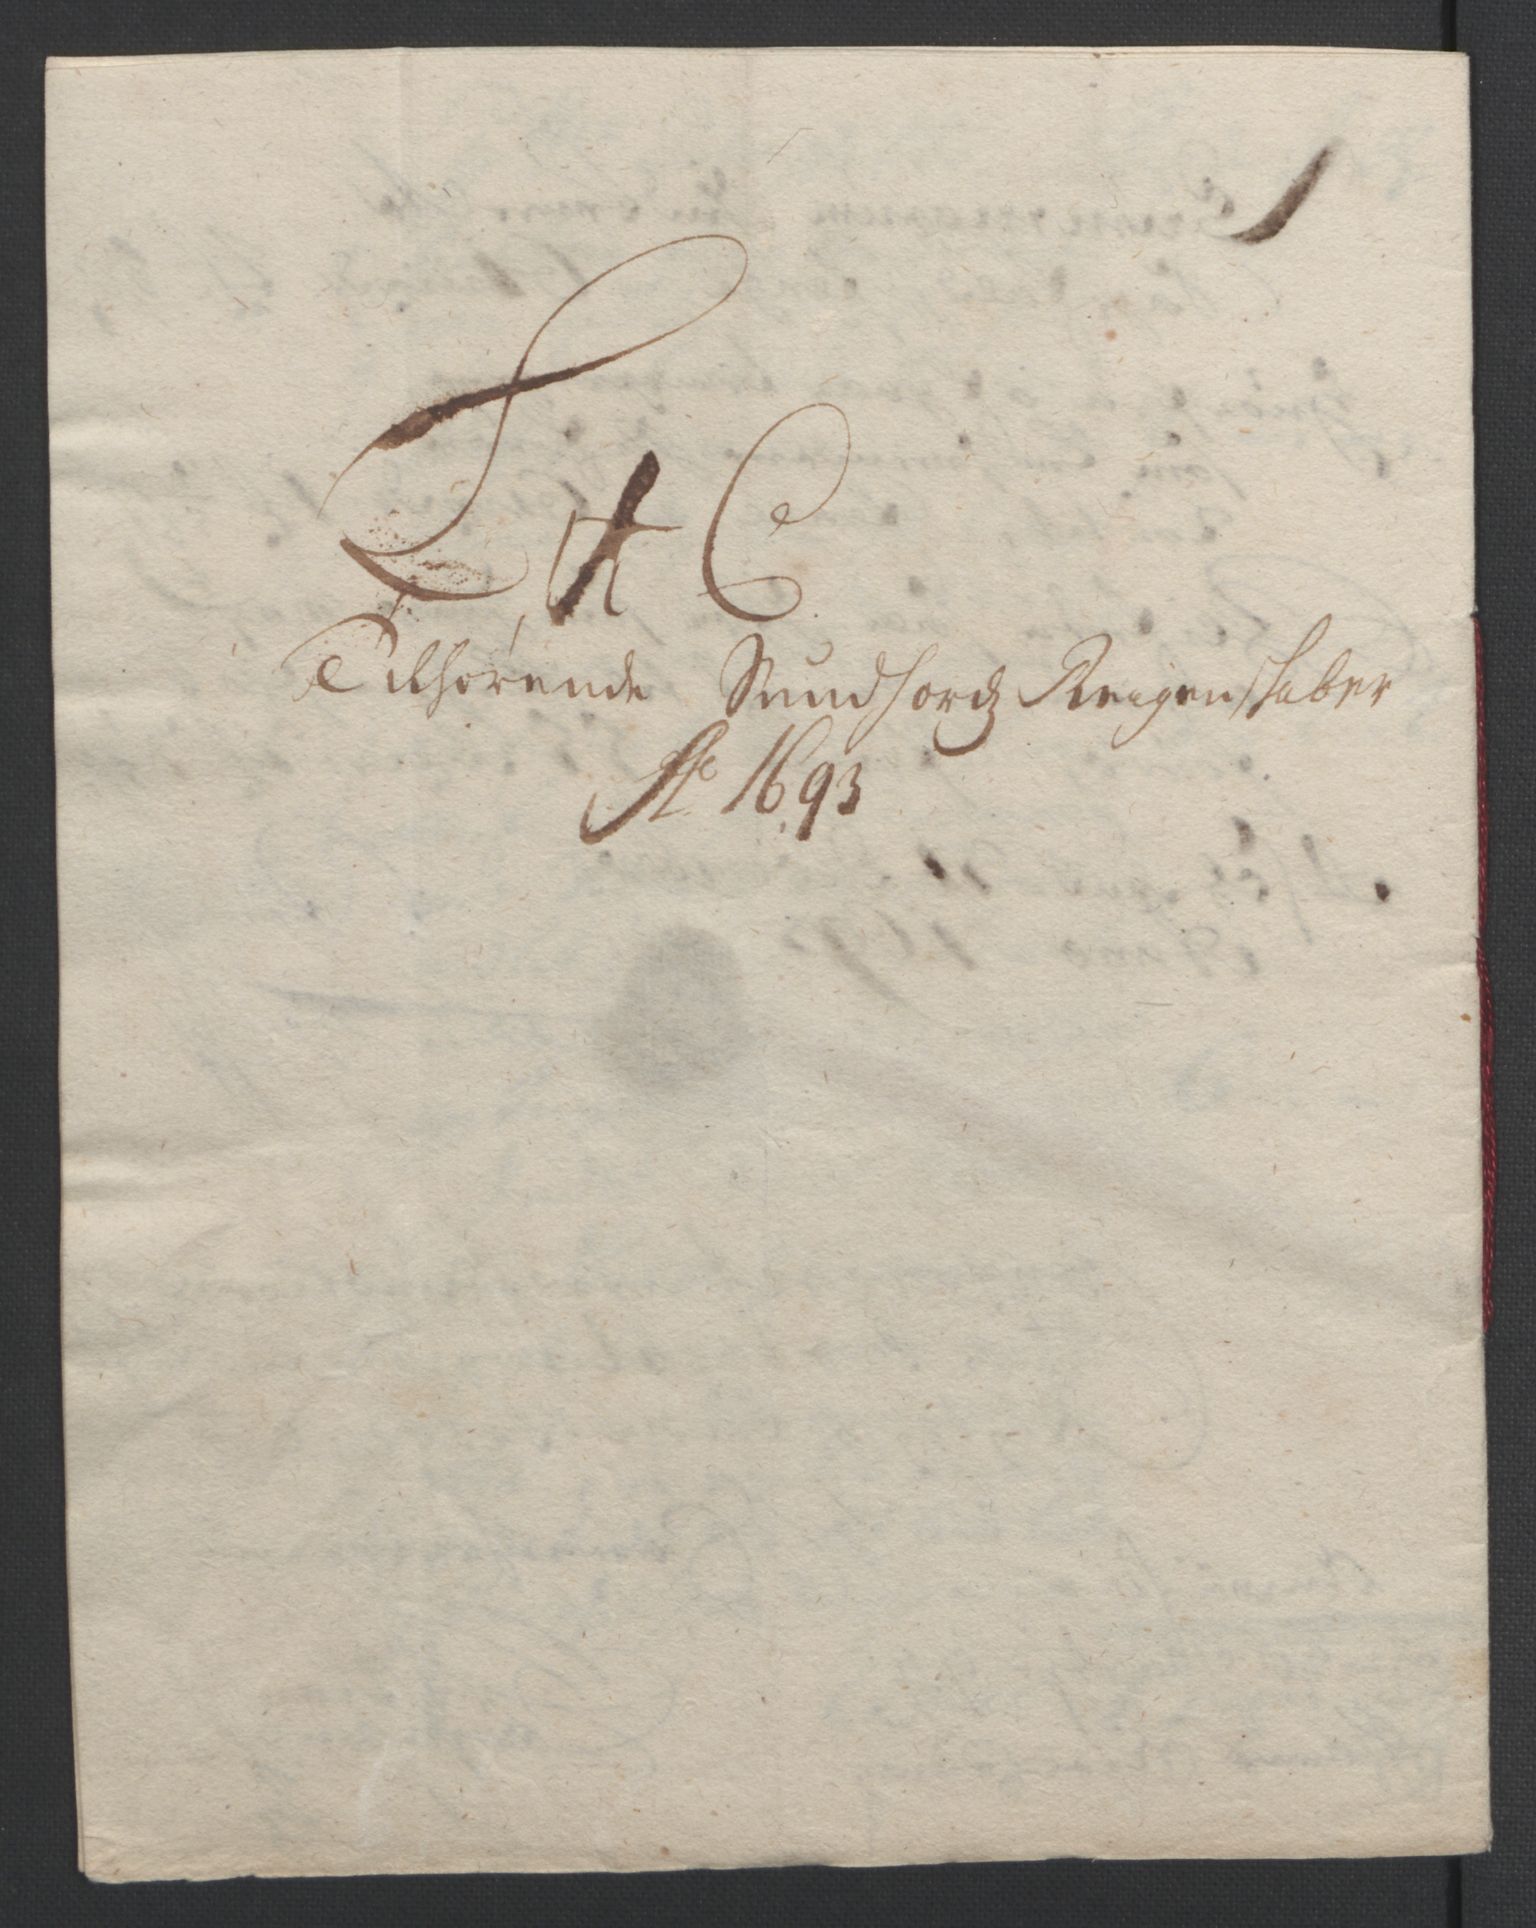 Lit C
Tilhörende Sundhordz Reigenskaber
Ao 1693